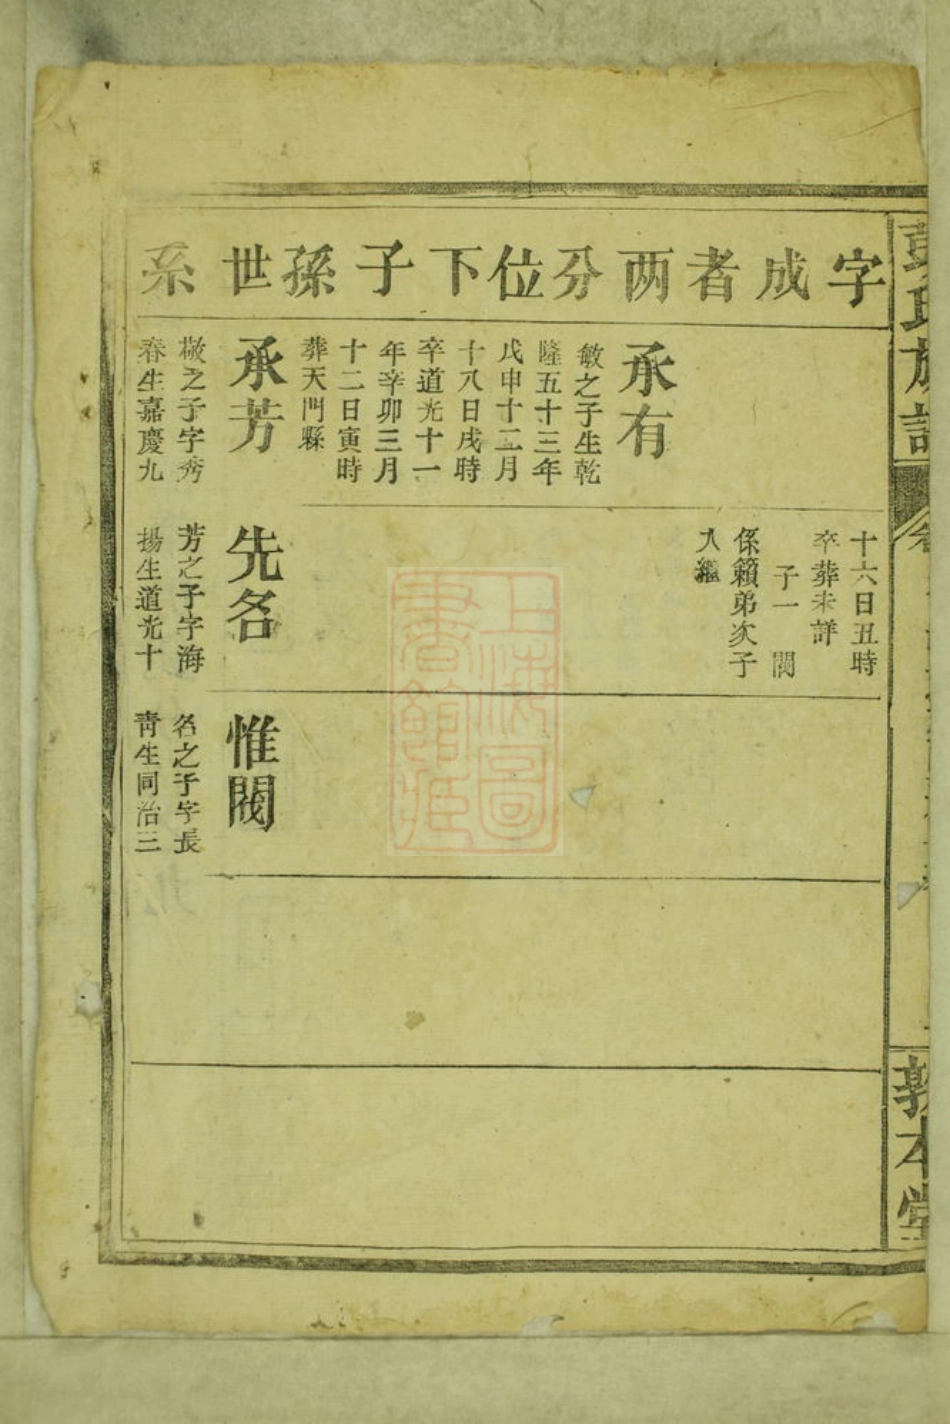 彭氏族譜
敦本堂
字成者两分位下子孫世系
十六日丑時
卒葬未詳
子一 閱
係籟弟次子
入繼
承有
敏之子生乾
隆五十三年
戊申十二月
十八日戌時
卒道光十一
年辛卯三月
十二日寅時
葬天門縣
承芳
敬之子字秀
春生嘉慶九
先名
芳之子字海
揚生道光十
惟閱
名之子字長
青生同治三
上海圖
書館藏